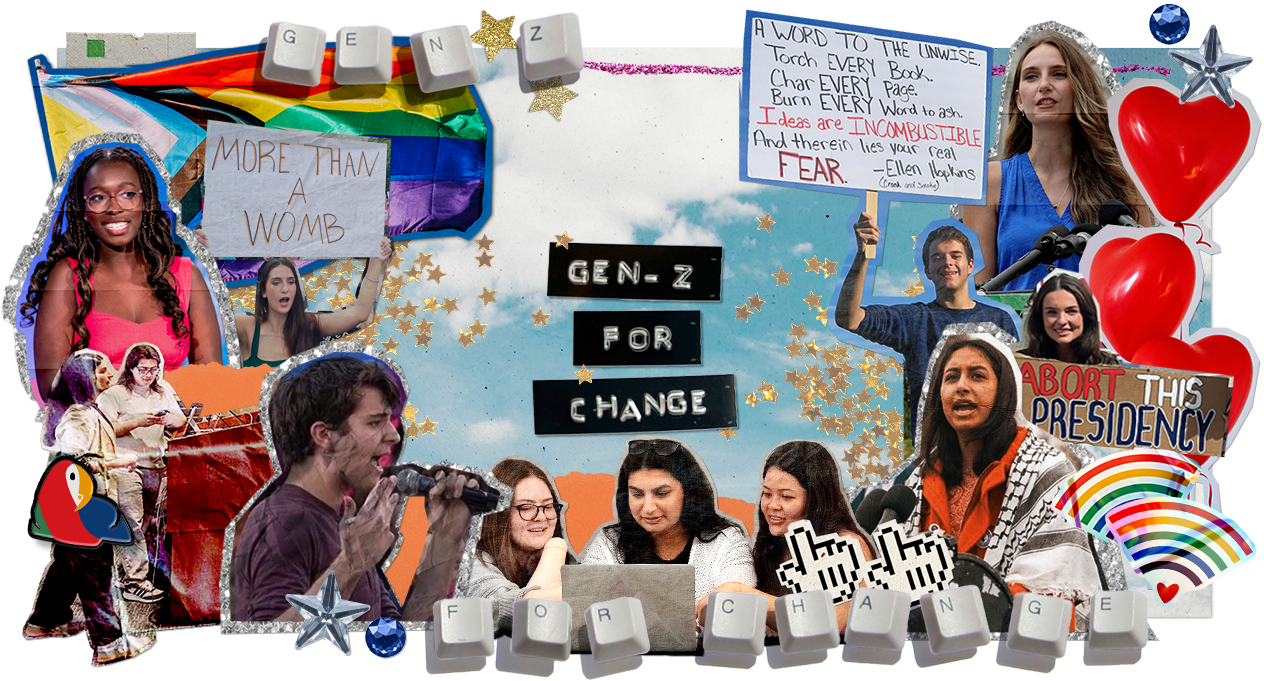 GEN Z
MORE THAN
A
WOMB
A WORD TO THE UNWISE.
Torch EVERY Book.
Char EVERY Page.
Burn EVERY Word to ash.
Ideas are INCOMBUSTIBLE
And therein lies your real
FEAR. -Ellen Hopkins
(Crank and Smoke)
GEN-Z
FOR
CHANGE
ABORT THIS
PRESIDENCY
FOR CHANGE